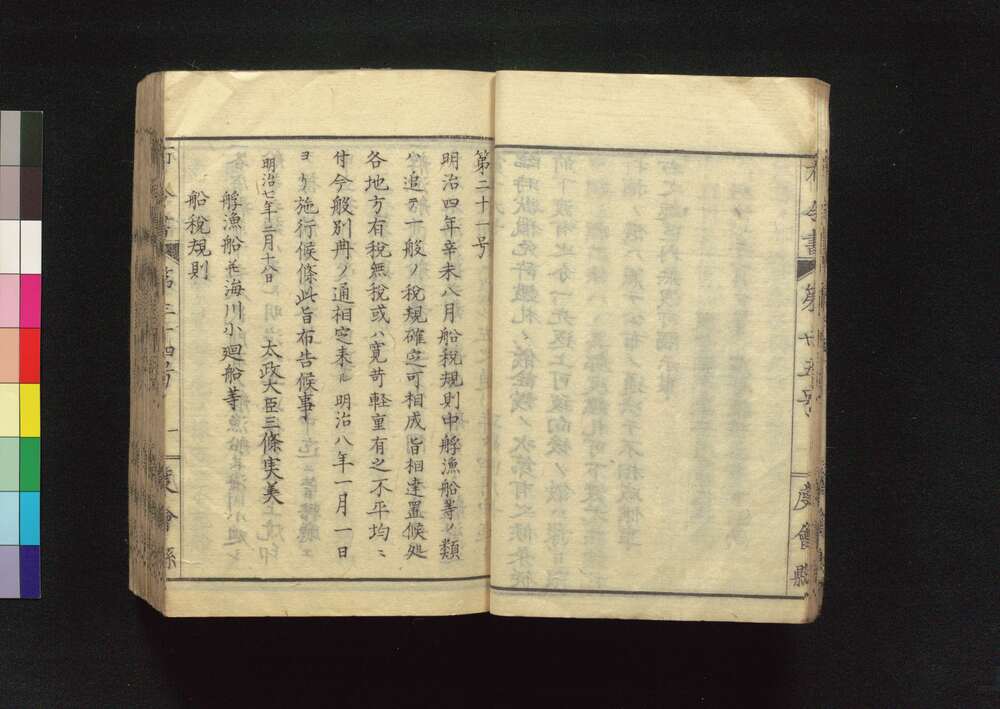 布令書 第十五号
度會縣
第二十一号
明治四年辛未八月船税規則中艀漁船等ノ類
ハ追テ一般ノ税規確定可相成旨相達置候処
各地方有税無税或ハ寛苛軽重有之不平均ニ
付今般別冊ノ通相定来ル明治八年一月一日
ヨリ施行候條此旨布告候事
明治七年二月十八日 太政大臣三條実美
艀漁船並海川小廻船等
船税規則
布令書 第二十四号 一 度會縣